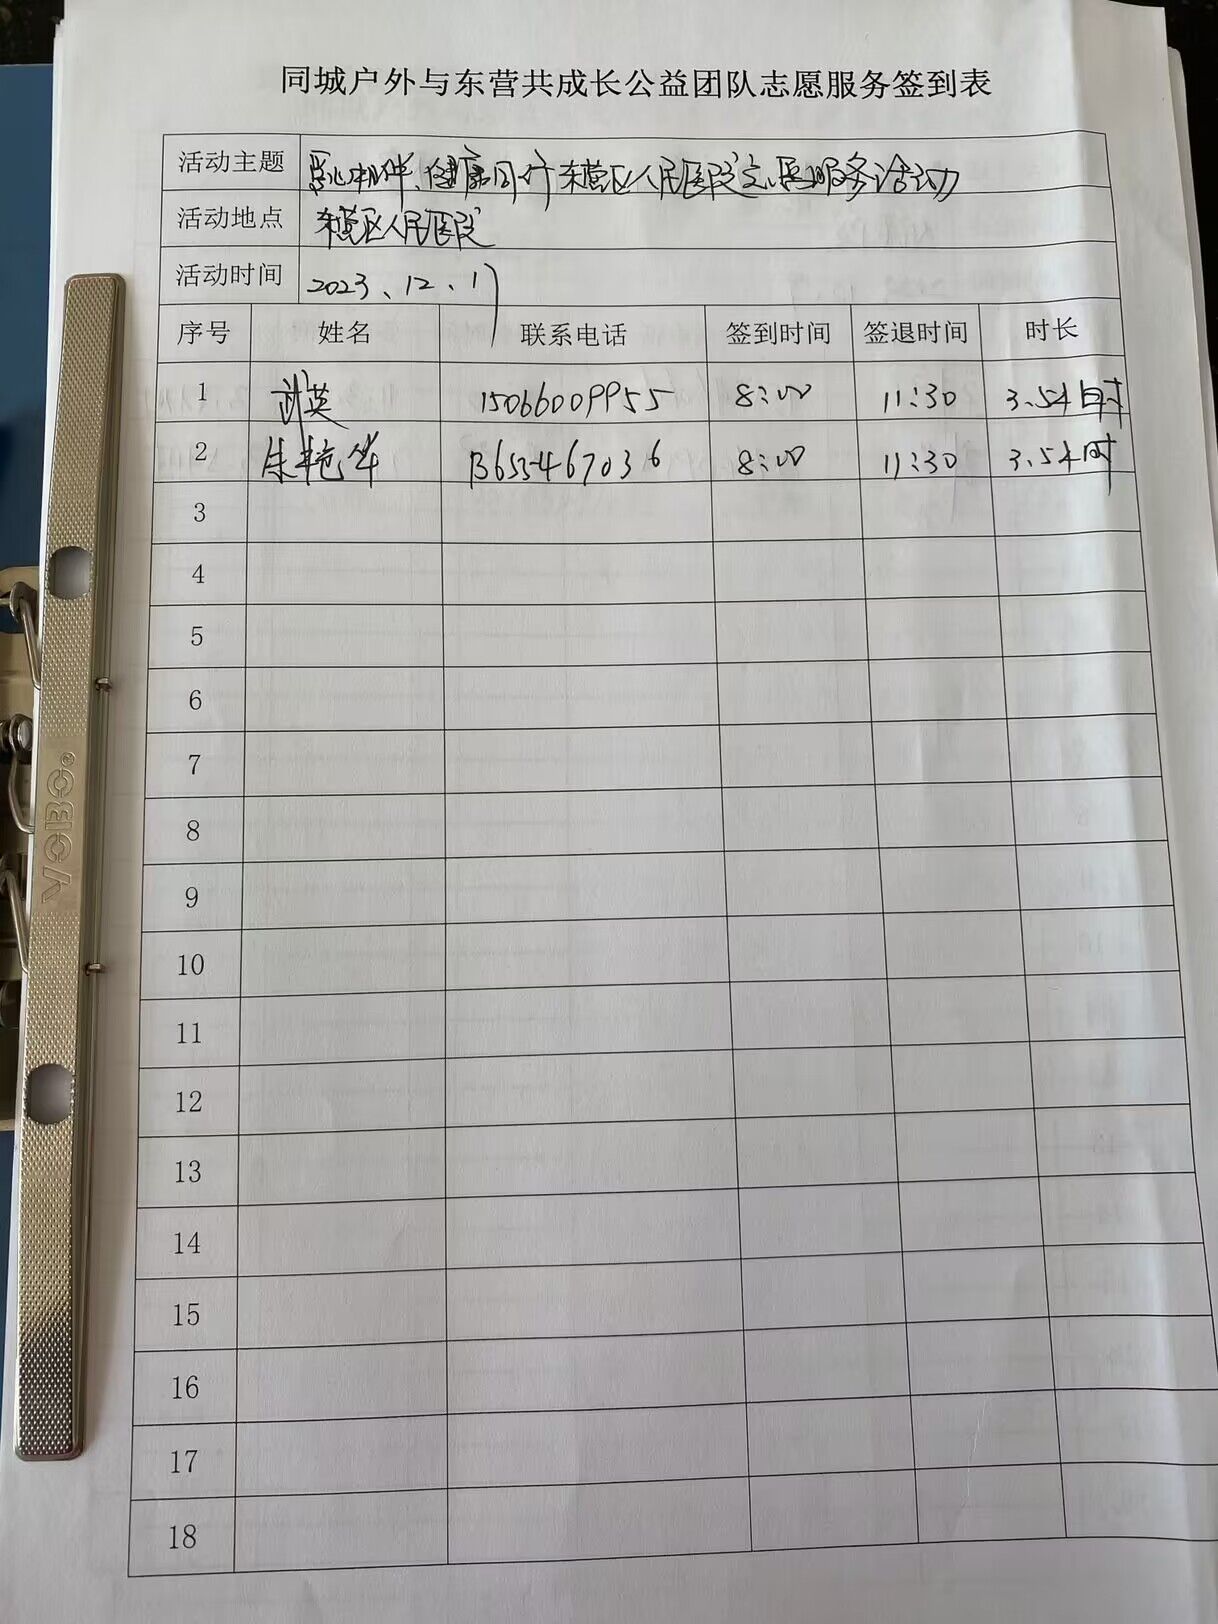 同城户外与东营共成长公益团队志愿服务签到表
活动主题 爱心相伴、健康同行东营区人民医院志愿服务活动
活动地点 东营区人民医院
活动时间 2023、12、17
序号 姓名 联系电话 签到时间 签退时间 时长
1 武英 15066009955 8:00 11:30 3.5小时
2 朱艳华 13655467036 8:00 11:30 3.5小时
3
4
5
6
7
8
9
10
11
12
13
14
15
16
17
18
YOBO®